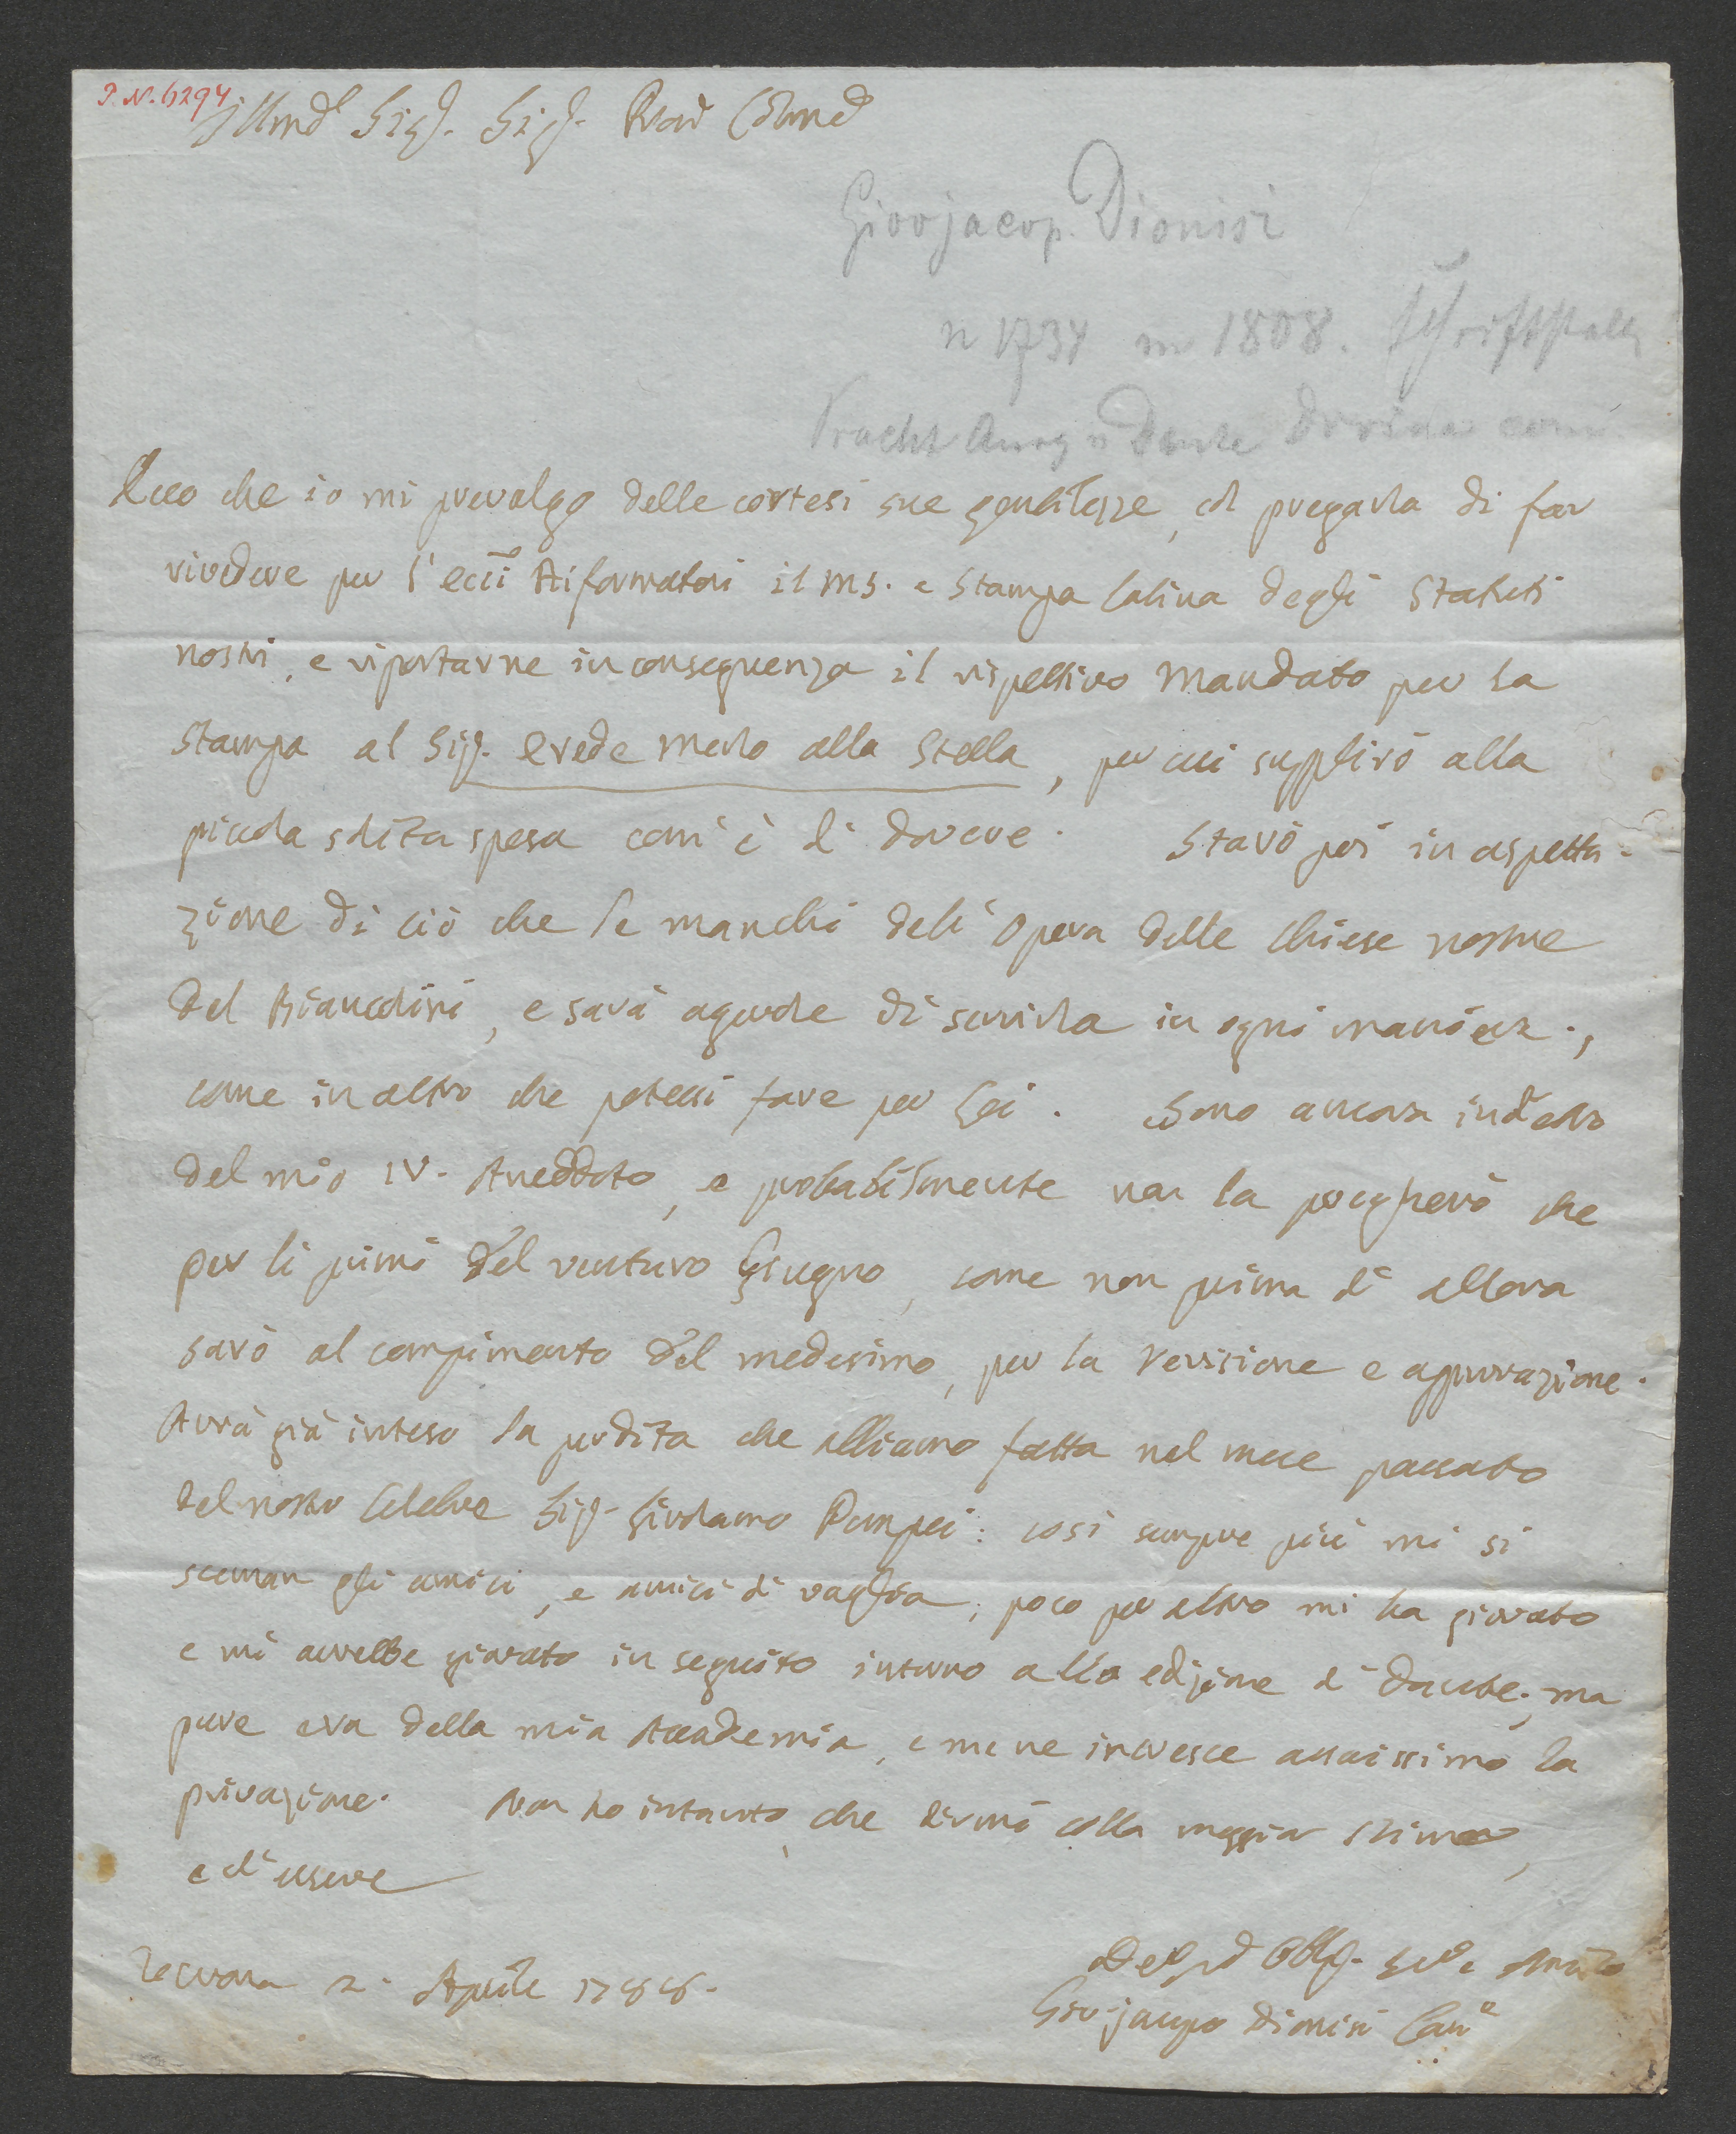 P. N. 6294
Illmo Sig. Sig. Pron Colmo
Giovjacop. Dionisi
n 1734 m 1808. Schriftsteller
Pracht Ausg v Dante Divina com
Ecco che io mi prevalgo delle cortesi sue gentilezze, col pregarla di far
rivedere per l'ecc͞mi Riformatori il ms. e stampa latina degli Statuti
nostri, e riportarne in conseguenza il rispettivo mandato per la
stampa al Sig. Erede Merlo alla Stella, per cui supplirò alla
picciola solita spesa com'è di dovere. Starò poi in aspetta-
zione di ciò che le manchi dell'Opera delle Chiese nostre
del Biancolini, e sarà agevole di servirla in ogni maniera;
come in altro che potessi fare per Lei. Sono ancora indietro
del mio IV. Aneddoto, e probabilmente non la pregherò che
per li primi del venturo Giugno, come non prima di allora
sarò al compimento del medesimo, per la revisione e approvazione.
Avrà già inteso la perdita che abbiamo fatta nel mese passato
del nostro celebre Sig. Girolamo Pompei: così sempre più mi si
sceman gli amici, e amici di vaglia; poco per altro mi ha giovato
e mi avrebbe giovato in seguito intorno alla edizione di Dante; ma
pure era della mia Accademia, e me ne incresce assaissimo la
privazione. Non ho intanto che dirmi colla maggior stima,
e di essere
Verona 2. Aprile 1788.
Dev͞mo Obblg. Se͞r e Amico
Gio: jacopo Dionisi Can͞e